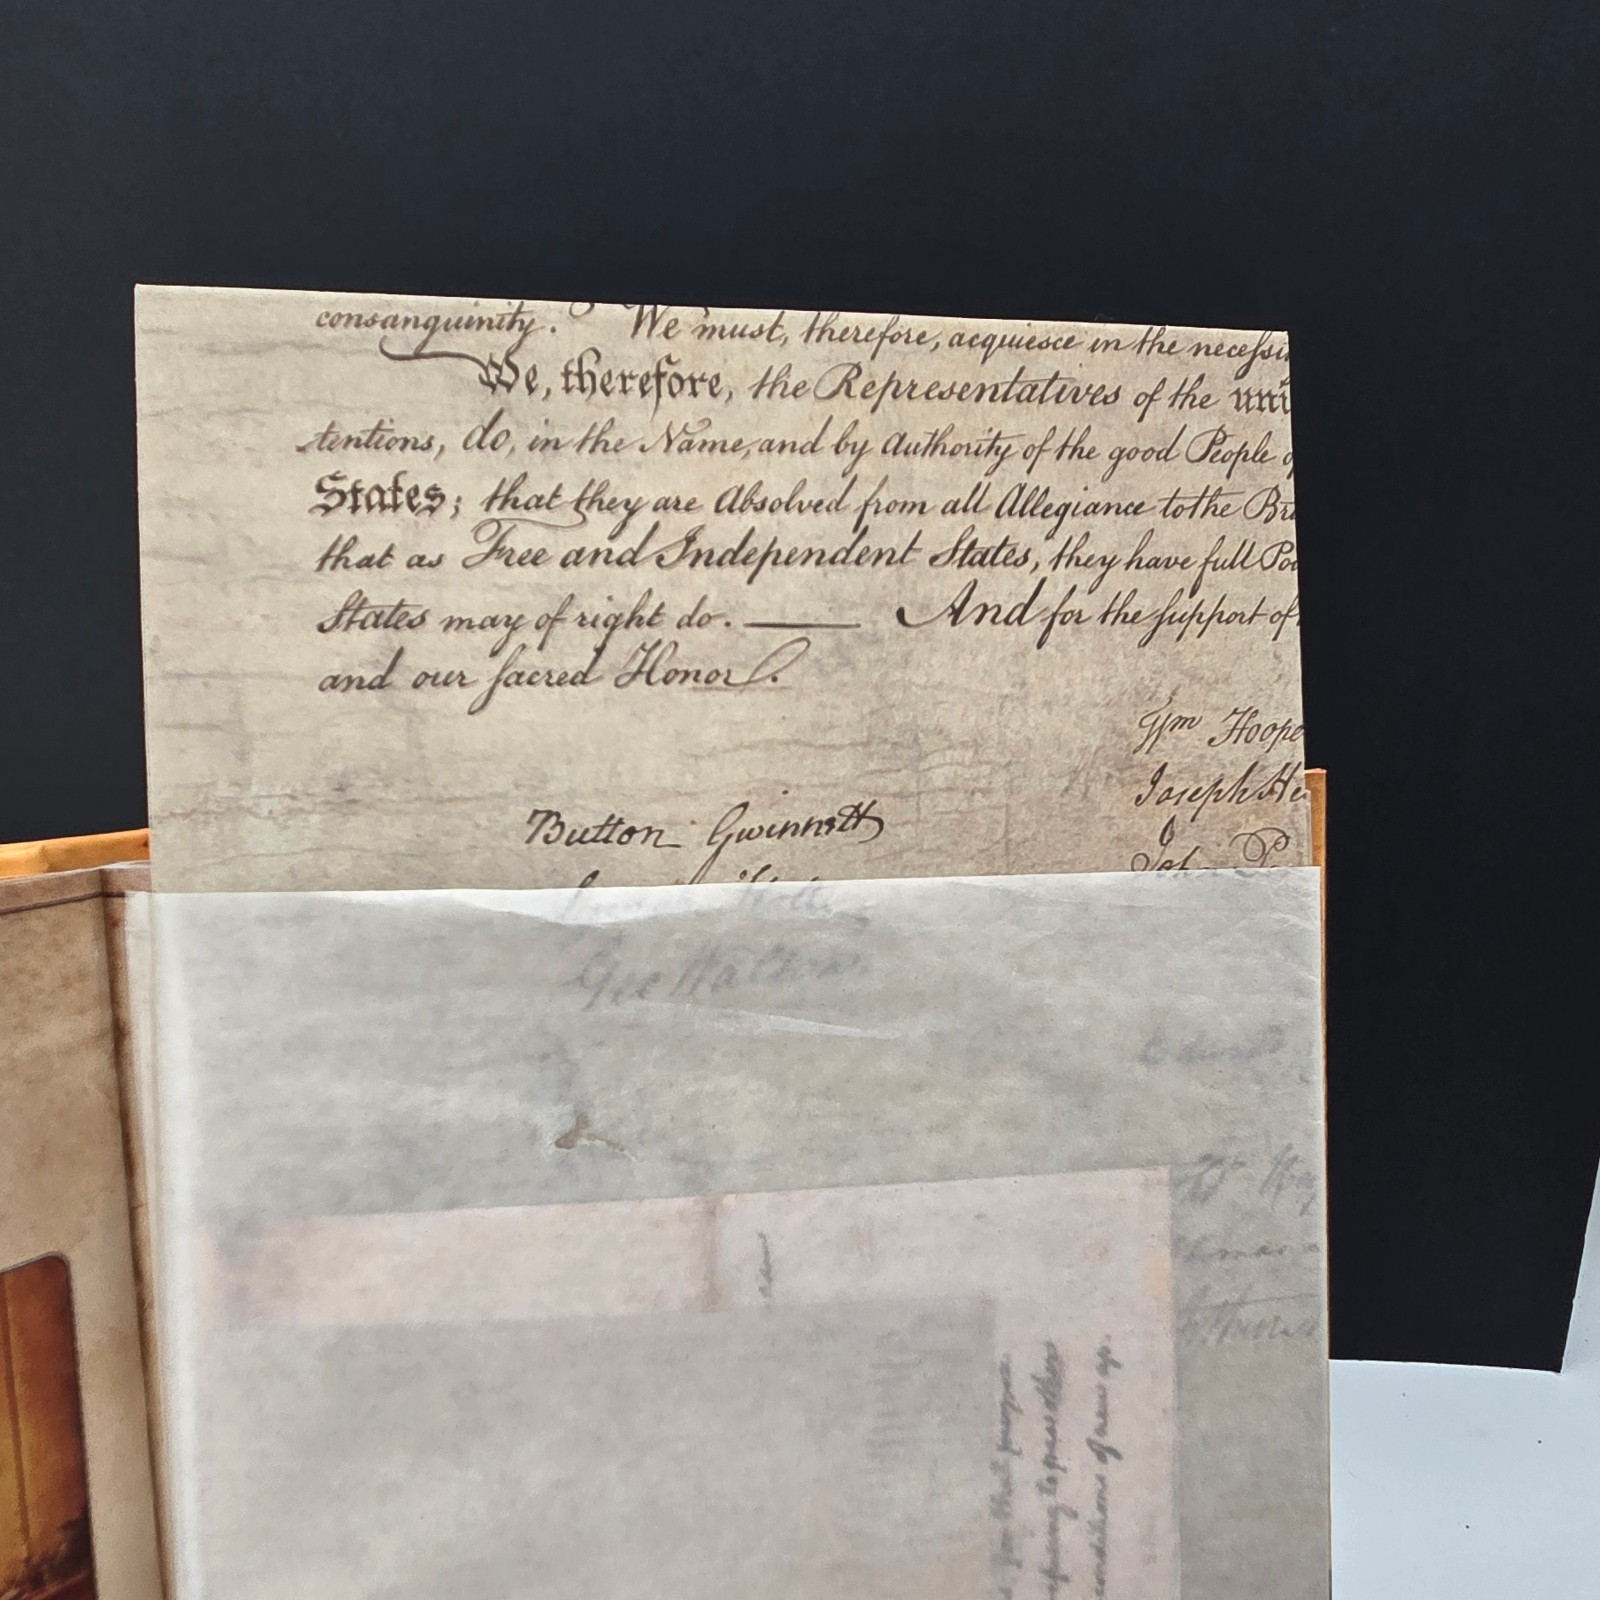 consanguinity. We must, therefore, acquiesce in the necessi
We, therefore, the Representatives of the uni
tentions, do, in the Name, and by Authority of the good People o
States; that they are Absolved from all Allegiance to the Bri
that as Free and Independent States, they have full Po
States may of right do. —— And for the support of
and our sacred Honor.
Wm Hoope
Joseph He
Button Gwinnett
John Pe
Geo Walton.
Edward
for that purpose.
refusing to pass other
conditions of new ap.